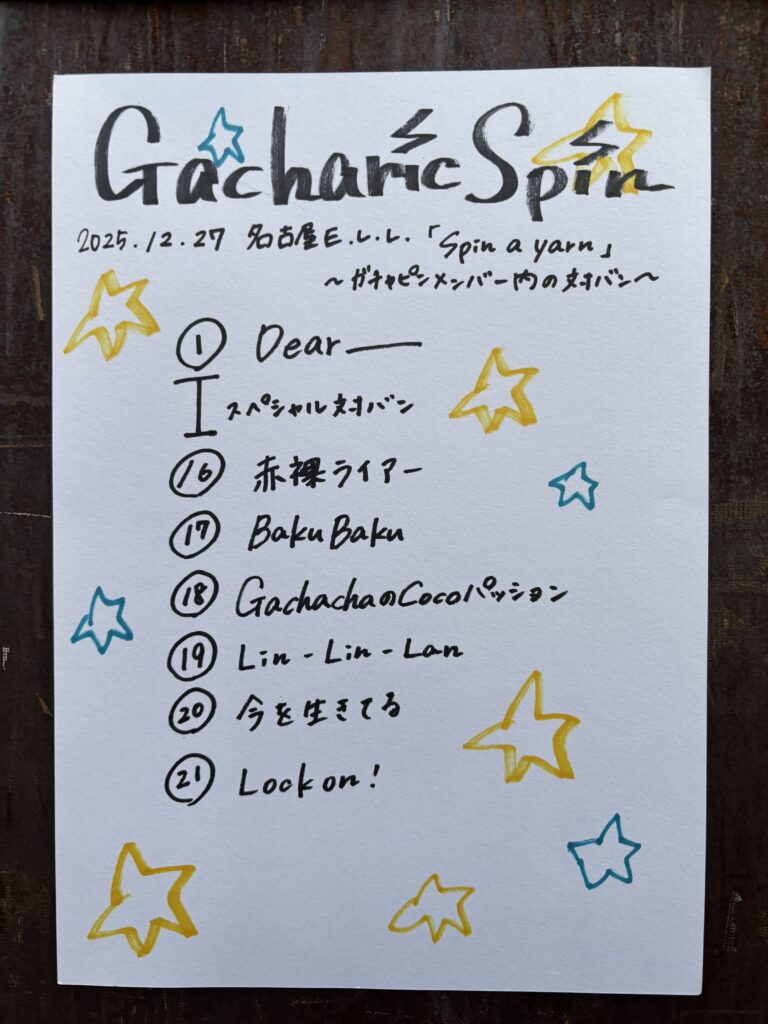 Gacharic Spin
2025.12.27 名古屋E.L.L.「Spin a yarn」
～ガチャピンメンバー内の対バン～
① Dear——
スペシャル対バン
⑯ 赤裸ライアー
⑰ BakuBaku
⑱ GachachaのCocoパッション
⑲ Lin-Lin-Lan
⑳ 今を生きてる
㉑ Lock on!